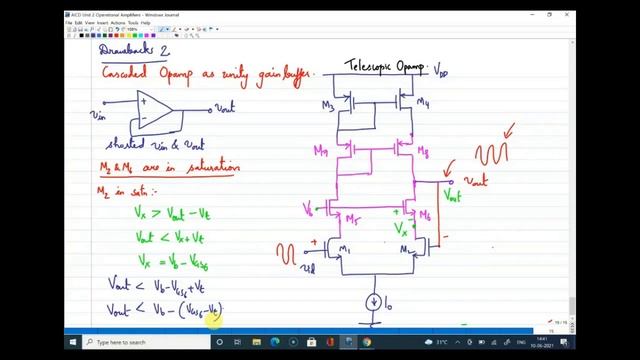 AICD Unit 2 Operational Amplifiers - Windows Journal
File Edit View Insert Actions Tools Help
Drawbacks 2
Cascoded Opamp as unity gain buffer.
Vin
+
-
Vout
shorted vin & vout
M2 & M6 are in saturation
M2 in satn :-
Vx > Vout - Vt
Vout < Vx + Vt
Vx = Vb - VGS6
Vout < Vb - VGS6 + Vt
Vout < Vb - (VGS6 - Vt)
Telescopic Opamp.
VDD
M3
M4
M7
M8
Vout
Vout
Vb
M5
+
M6
Vx
-
+
M1
M2
-
Vid
I0
Type here to search
31°C
ENG
14:41
10-06-2021